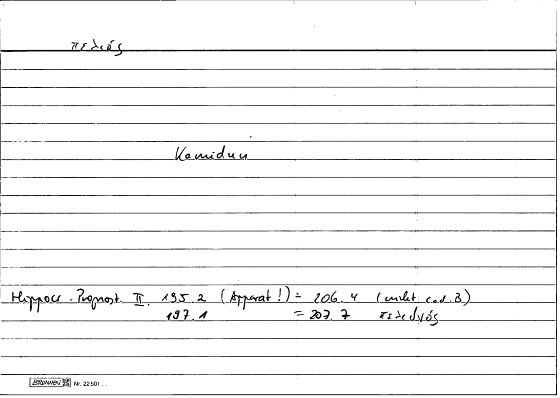 πελιός
Kamidun
Hippocr. Prognost. II. 195.2 (Apparat!) = 206.4 (cod. B)
197.1 = 207.7 πελιδνός
BRUNNEN Nr. 22501